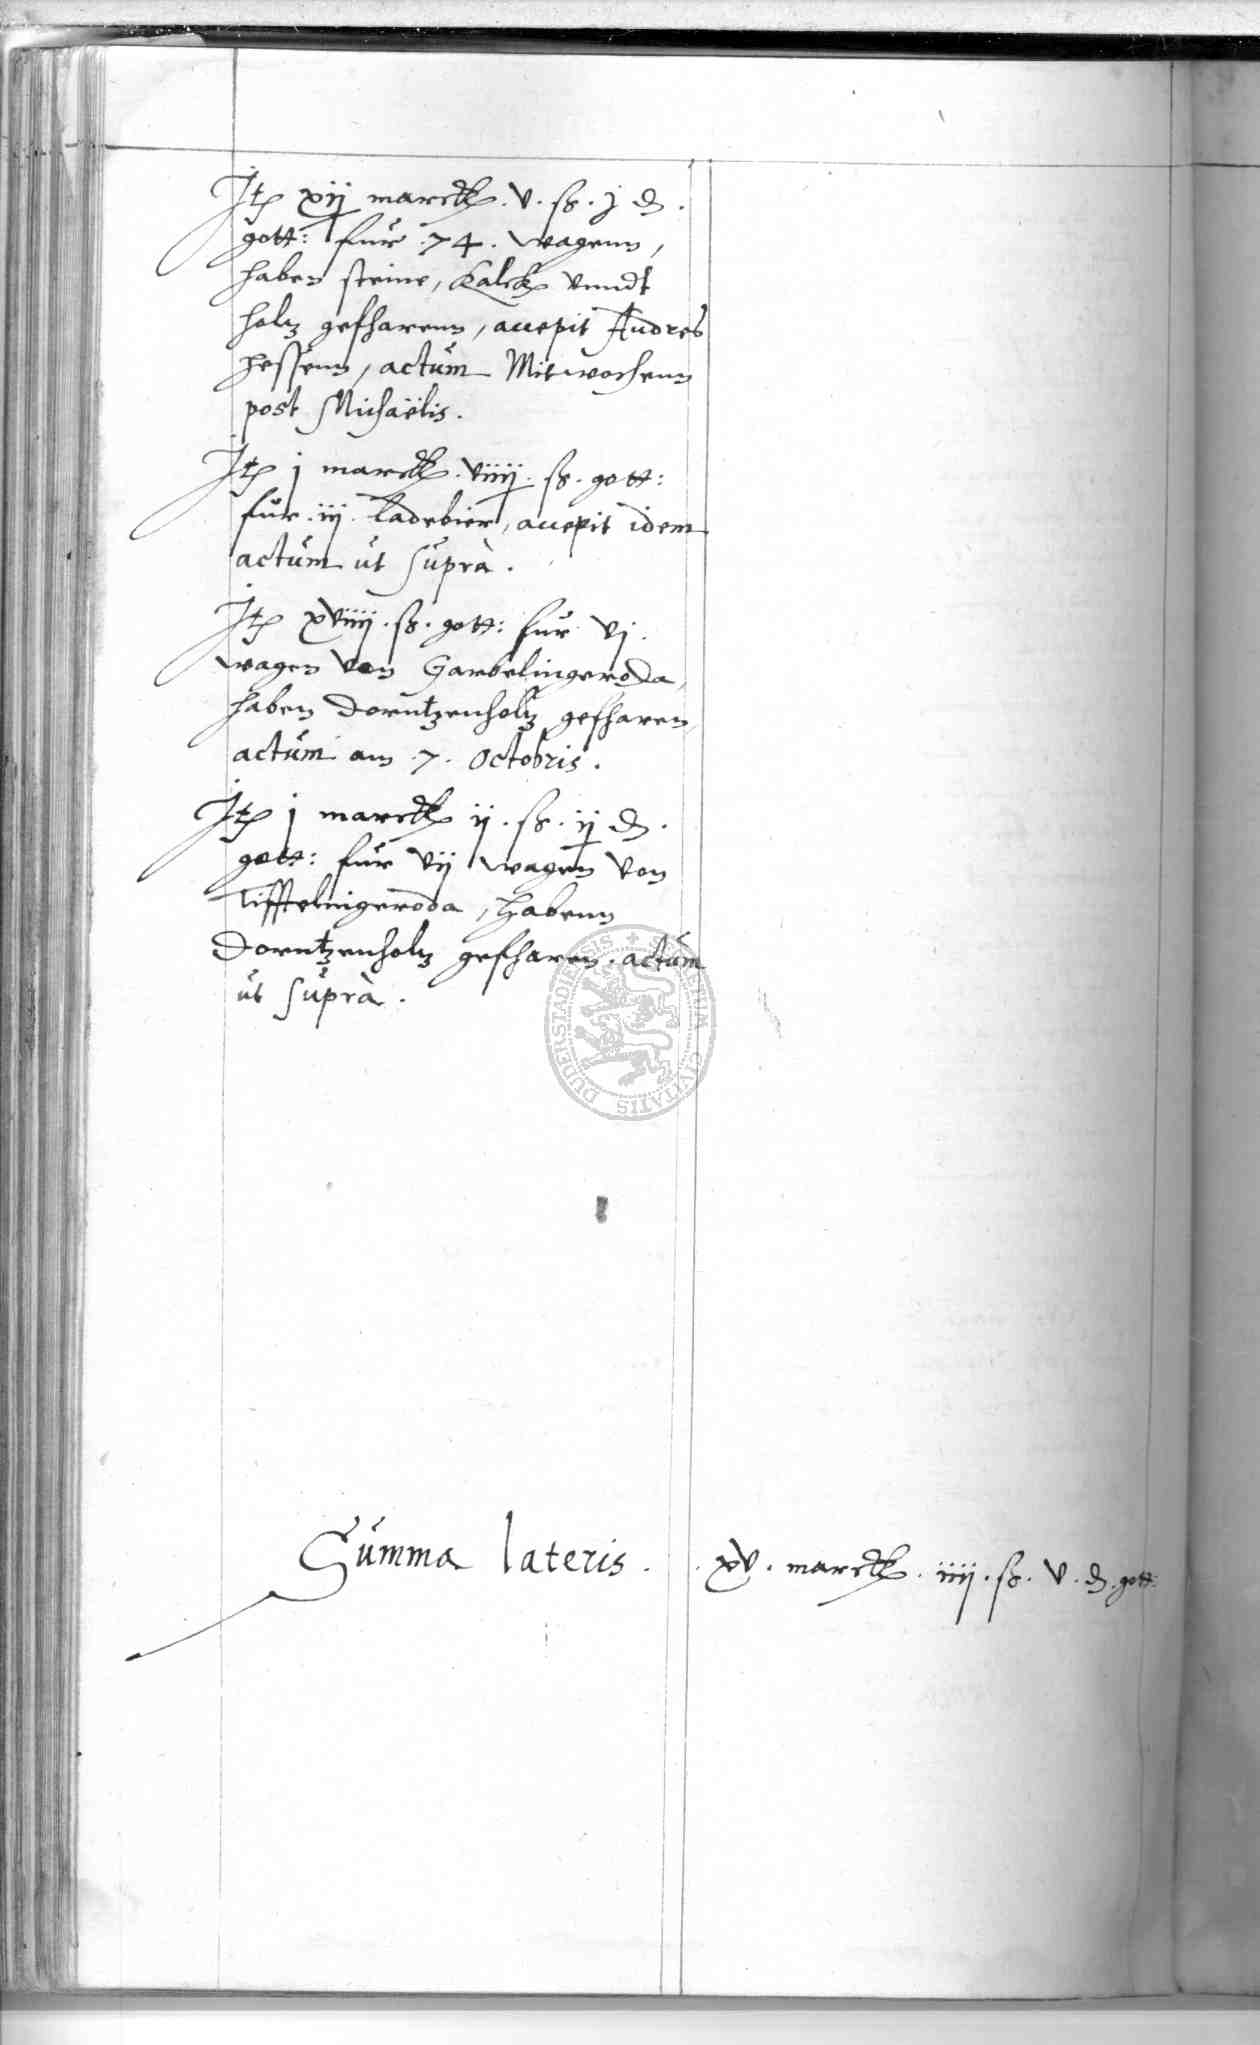 Itp xij marck. v. ß. j ₰.
gott: fur .74. wagenn,
haben steine, Kalck vnndt
holtz gefharenn, accepit Andres
Hessenn, actum Mitwochenn
post Michaëlis.
Itp j marck. viiij. ß. gott:
fur .iij. ladebier, accepit idem
actum ut suprà.
Itp xviiij. ß. gott: fur vj.
wagen von Garbelingeroda,
haben Dorntzenholtz gefharen,
actum am .7. Octobris.
Itp j marck ij. ß. ij ₰.
gott: fur vij wagen von
Tifftelingeroda, habenn
Dorntzenholtz gefharen. actum
ut suprà.
SECRETUM CIVITATIS DUDERSTADIENSIS
Summa lateris. xv. marck. iiij. ß. v. ₰. gott: